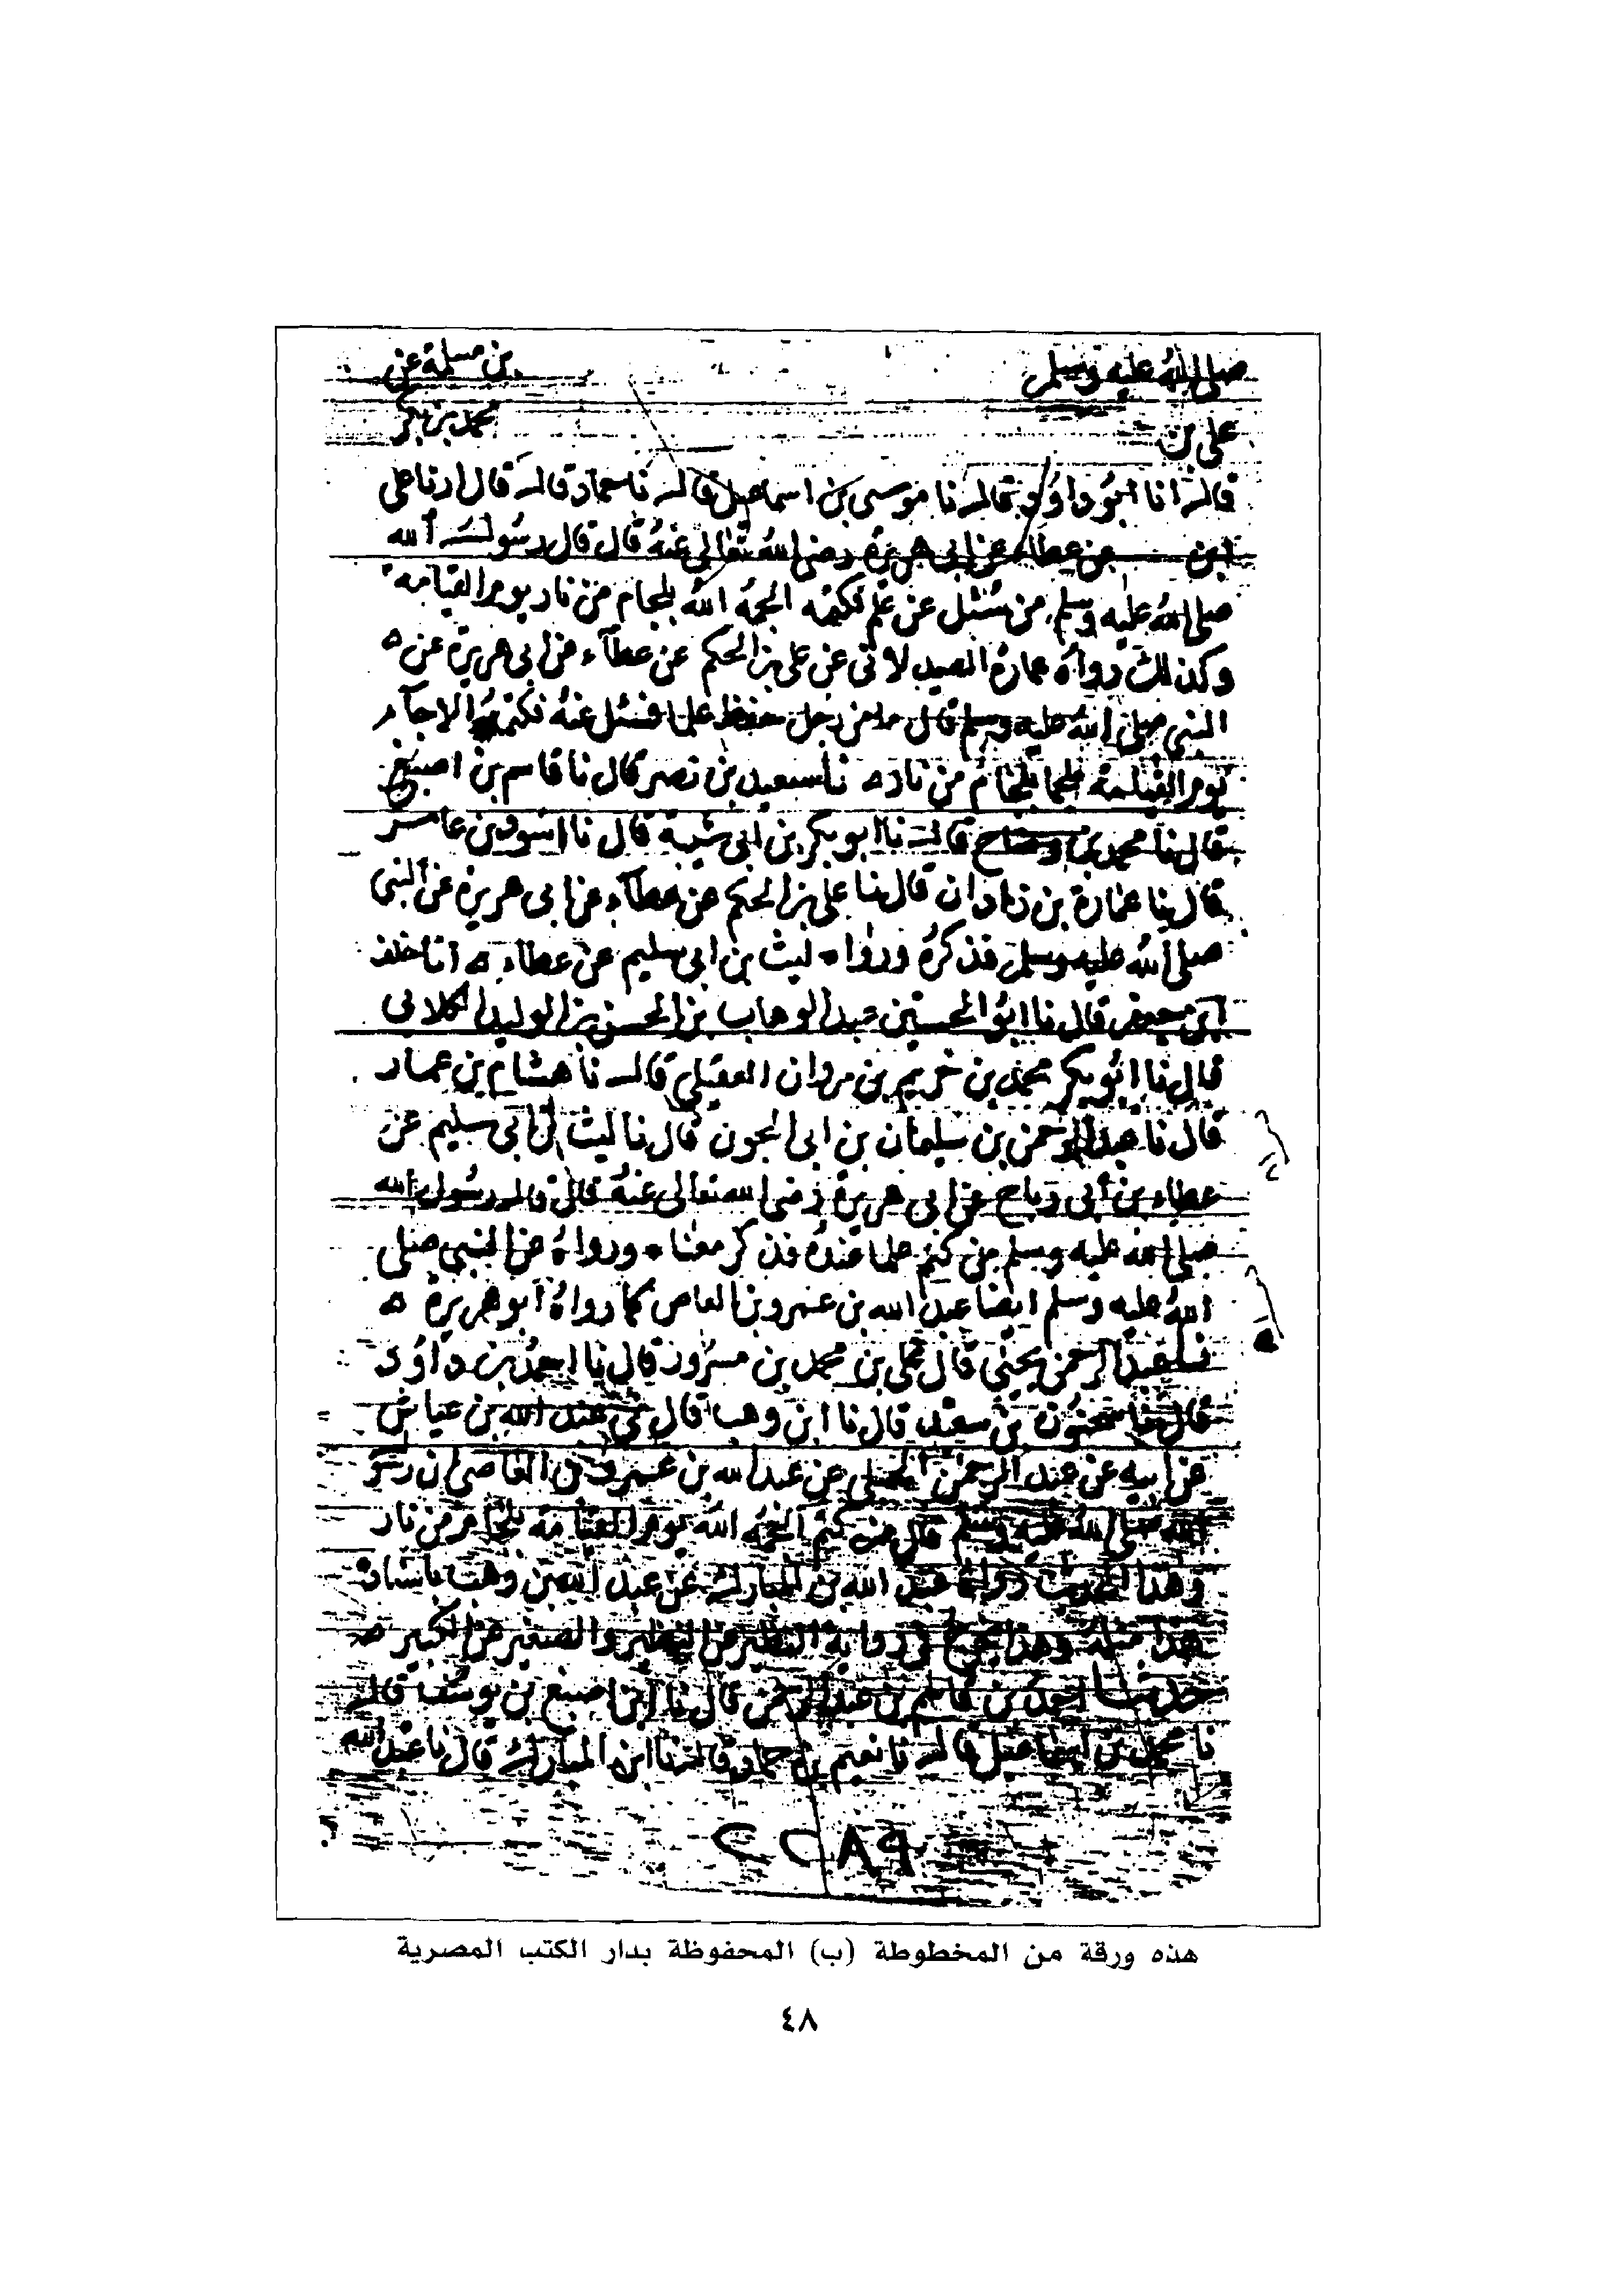 صلى الله عليه وسلم بن مسلمة عن
على بن محمد بن بكر
قال انا ابو داود قال نا موسى بن اسماعيل قال نا حماد قال قال ارنا على
ابن عن عطاء عن ابى هريرة رضى الله تعالى عنه قال قال رسول الله
صلى الله عليه وسلم من سئل عن علم فكتمه الجمه الله بلجام من نار يوم القيامة
وكذلك رواه عمارة الصيدلانى عن على بن الحكم عن عطاء عن ابى هريرة عن
النبى صلى الله عليه وسلم قال ما من رجل حفظ علما فسئل عنه فكتمه الا جآء
يوم القيامة ملجما بلجام من نار نا سعيد بن نصر قال نا قاسم بن اصبغ
قال نا محمد بن وضاح قال نا ابو بكر بن ابى شيبة قال نا اسود بن عامر
قال نا عمارة بن زاذان قال نا على بن الحكم عن عطآء عن ابى هريرة عن النبى
صلى الله عليه وسلم فذكره ورواه ليث بن ابى سليم عن عطاء انا خلف
ابن جعفر قال نا ابو الحسين عبد الوهاب بن الحسن بن الوليد الكلابى
قال نا ابو بكر محمد بن خريم بن مروان العقيلى قال نا هشام بن عمار
قال نا عبد الرحمن بن سليمان بن ابى الجون قال نا ليث بن ابى سليم عن
عطاء بن أبى رباح عن ابى هريرة رضى الله تعالى عنه قال قال رسول الله
صلى الله عليه وسلم من كتم علما عنده فذكر معناه ورواه عن النبى صلى
الله عليه وسلم ايضا عبد الله بن عمرو بن العاص كما رواه ابو هريرة
نا عبد الرحمن بن يحيى قال نا على بن محمد بن مسرور قال نا احمد بن داود
قال نا سحنون بن سعيد قال نا ابن وهب قال نى عبد الله بن عياش
عن ابيه عن عبد الرحمن الحبلى عن عبد الله بن عمرو بن العاصى ان رسول
الله صلى الله عليه وسلم قال من كتم الجمه الله يوم القيامة بلجام من نار
وهذا الحديث رواه عبد الله بن المبارك عن عبد الله بن وهب باسناده
هذا مثله وهذا يخرج فى رواية النظير عن النظير والصغير عن الكبير
حدثنا احمد بن قاسم بن عبد الرحمن قال نا ابن اصبغ بن يوسف قال
نا محمد بن اسماعيل قال نا نعيم بن حماد قال نا ابن المبارك قال نا عبد الله
هذه ورقة من المخطوطة (ب) المحفوظة بدار الكتب المصرية
٤٨